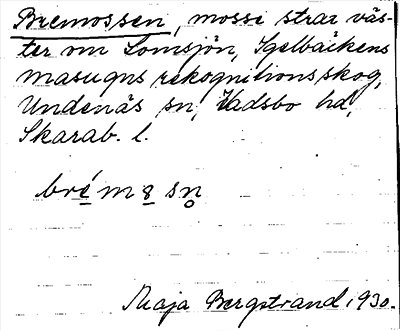 Bremossen, mosse strax väs-
ter om Lomsjön, Igelbäckens
masugns rekognitionsskog,
Undenäs sn, Vadsbo hd,
Skarab. l.
brém8sn̥
Maja Bergstrand 1930.